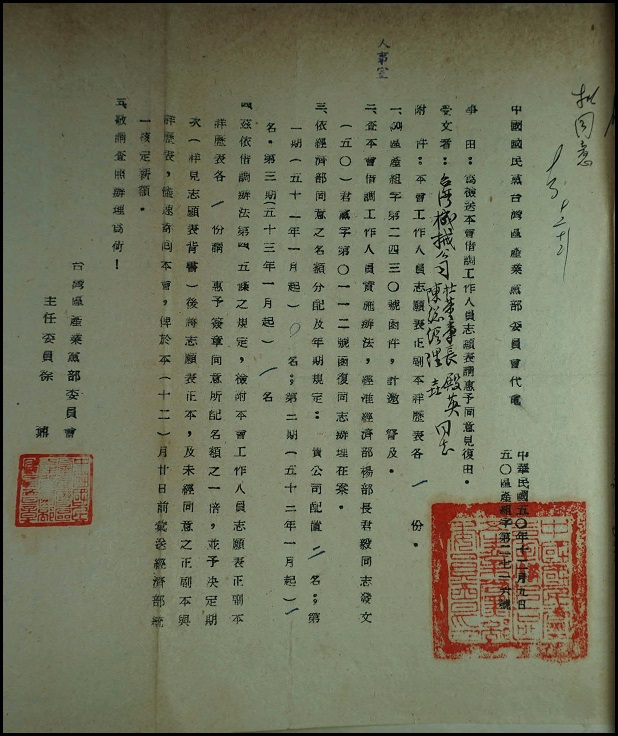 擬同意
人事室
中國國民黨台灣區產業黨部委員會代電
中華民國五〇年十二月九日
五〇區產組字第二七二六號
事由：為檢送本會借調工作人員志願表請惠予同意見復由。
受文者：台灣機械公司杜董事長殿英同志
陳總經理
附件：本會工作人員志願表正副本祥歷表各一份。
一、區產組字第二四三〇號函件，計邀詧及。
二、查本會借調工作人員實施辦法，經准經濟部楊部長君毅同志發文
（五〇）君處字第〇一一二號函復同志辦理在案。
三、依經濟部同意之名額分配及年期規定：貴公司配置二名；第
一期（五十一年一月起）〇名；第二期（五十二年一月起）一
名。第三期（五十三年一月起）一名
四、茲依借調辦法第四、五條之規定，檢附本會工作人員志願表正副本
祥歷表各一份請惠予簽章同意所配名額之一倍，並予決定期
次（祥見志願表背書）後將志願表正本，及未經同意之正副本與
祥歷表，儘速寄回本會，俾於本（十二）月廿日前彙送經濟部統
一核定責額。
五、敬請查照辦理為荷！
台灣區產業黨部委員會
主任委員徐鼐